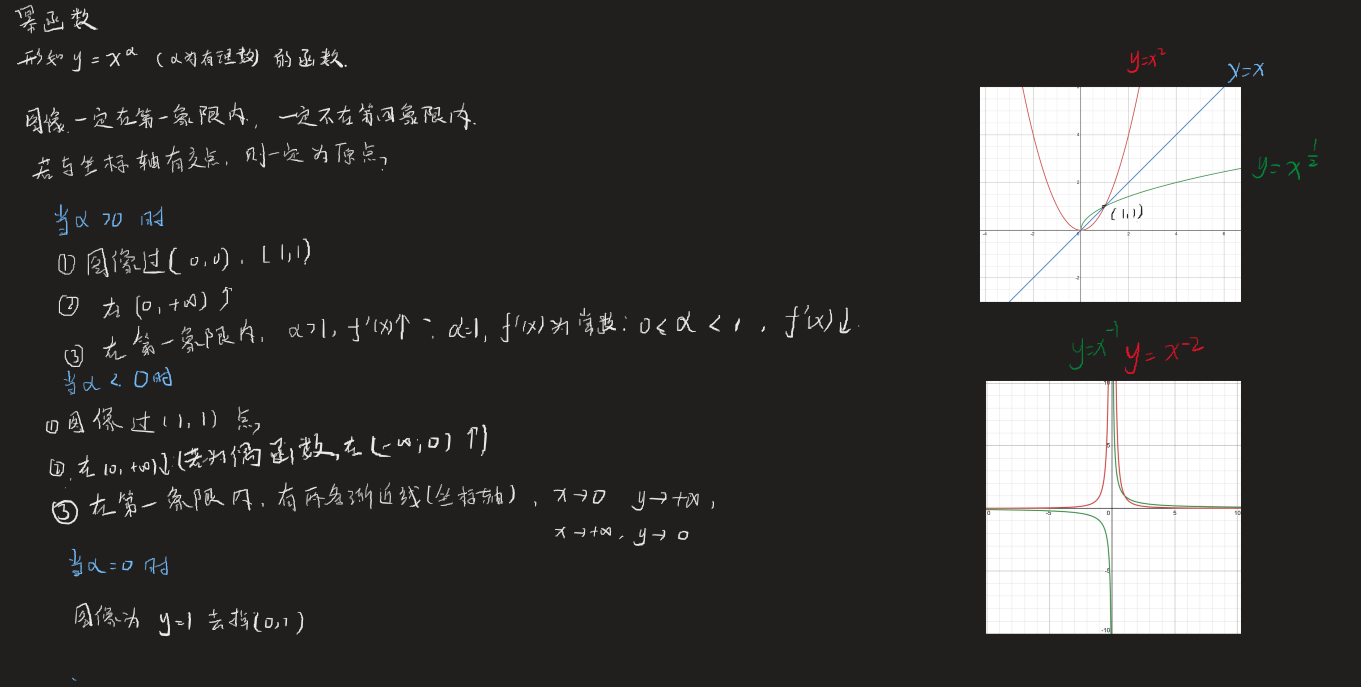 幂函数
形如 y = x^α (α为有理数) 的函数.
图像.一定在第一象限内, 一定不在第四象限内.
若与坐标轴有交点, 则一定为原点,
当α>0 时
① 图像过(0,0), (1,1)
② 在 (0,+∞) ↑
③ 在第一象限内, α>1, f'(x)↑; α=1, f'(x)为常数; 0<α<1, f'(x)↓.
当α<0时
① 图像过(1,1)点,
② 在(0,+∞)↓(若为偶函数,在(-∞,0)↑)
③ 在第一象限内, 有两条渐近线(坐标轴), x→0 y→+∞,
x→+∞, y→0
当α=0 时
图像为 y=1 去掉(0,1)
y=x²
y=x
y=x^1/2
(1,1)
-4 -2 0 2 4 6
4
2
-2
y=x^-1 y=x^-2
10
5
-5 0 5 10
-5
-10